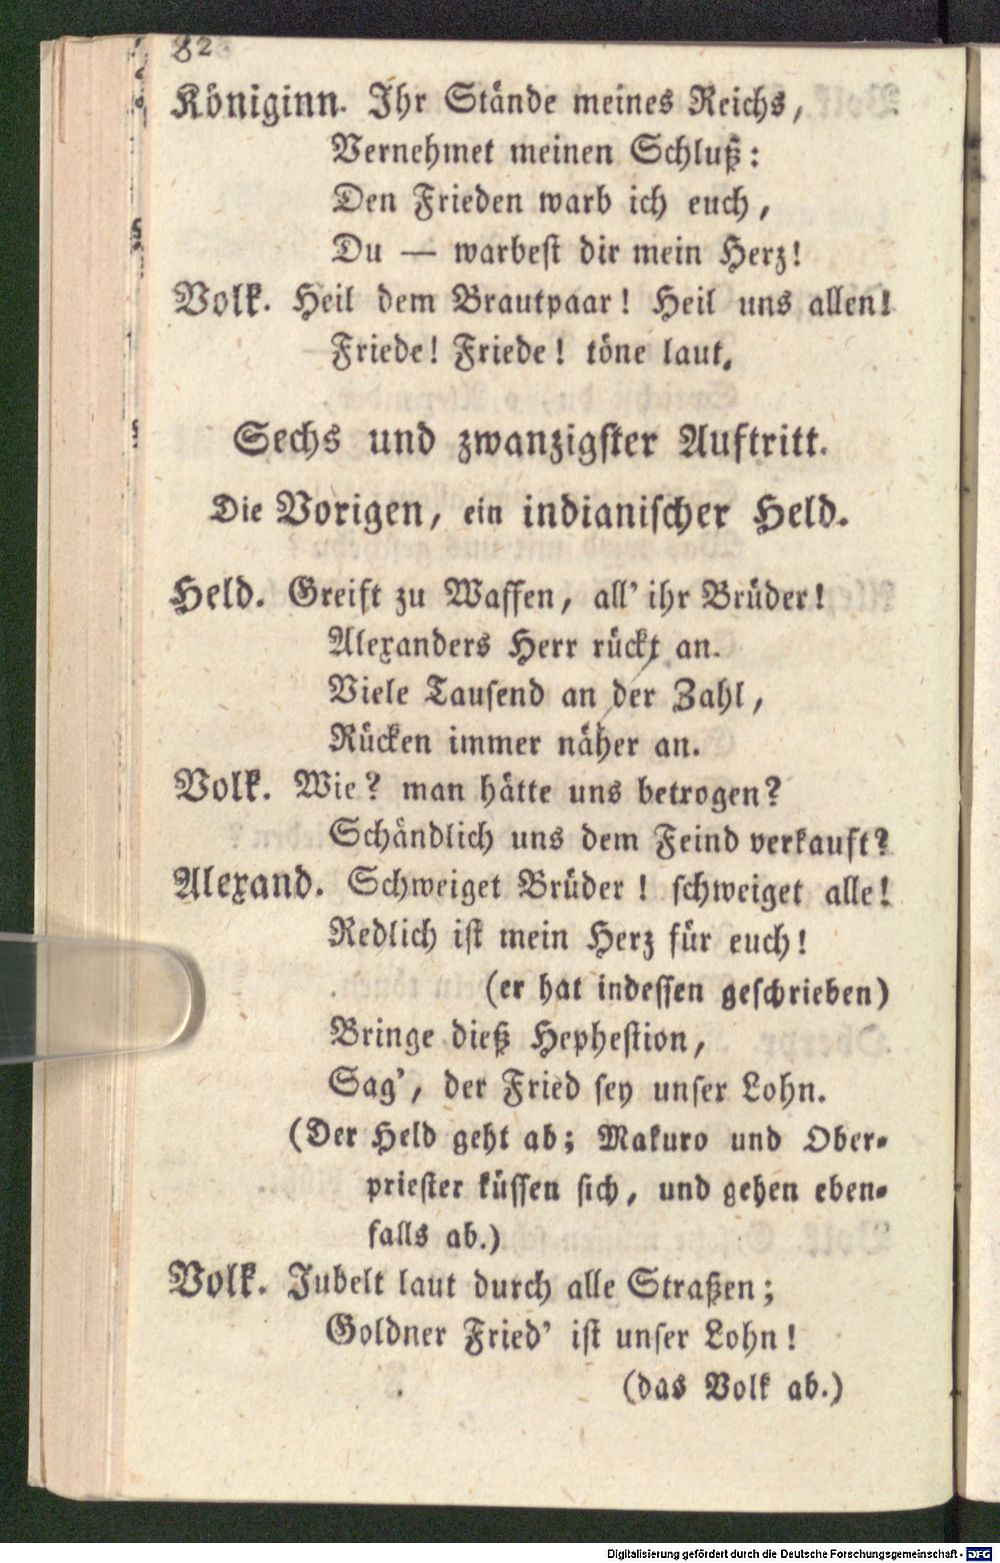 82
Königinn. Ihr Stände meines Reichs,
Vernehmet meinen Schluß:
Den Frieden warb ich euch,
Du — warbest dir mein Herz!
Volk. Heil dem Brautpaar! Heil uns allen!
Friede! Friede! töne laut.
Sechs und zwanzigster Auftritt.
Die Vorigen, ein indianischer Held.
Held. Greift zu Waffen, all' ihr Brüder!
Alexanders Herr rückt an.
Viele Tausend an der Zahl,
Rücken immer näher an.
Volk. Wie? man hätte uns betrogen?
Schändlich uns dem Feind verkauft?
Alexand. Schweiget Brüder! schweiget alle!
Redlich ist mein Herz für euch!
(er hat indessen geschrieben)
Bringe dieß Hephestion,
Sag', der Fried sey unser Lohn.
(Der Held geht ab; Makuro und Ober-
priester küssen sich, und gehen eben-
falls ab.)
Volk. Jubelt laut durch alle Straßen;
Goldner Fried' ist unser Lohn!
(das Volk ab.)
Digitalisierung gefördert durch die Deutsche Forschungsgemeinschaft - DFG